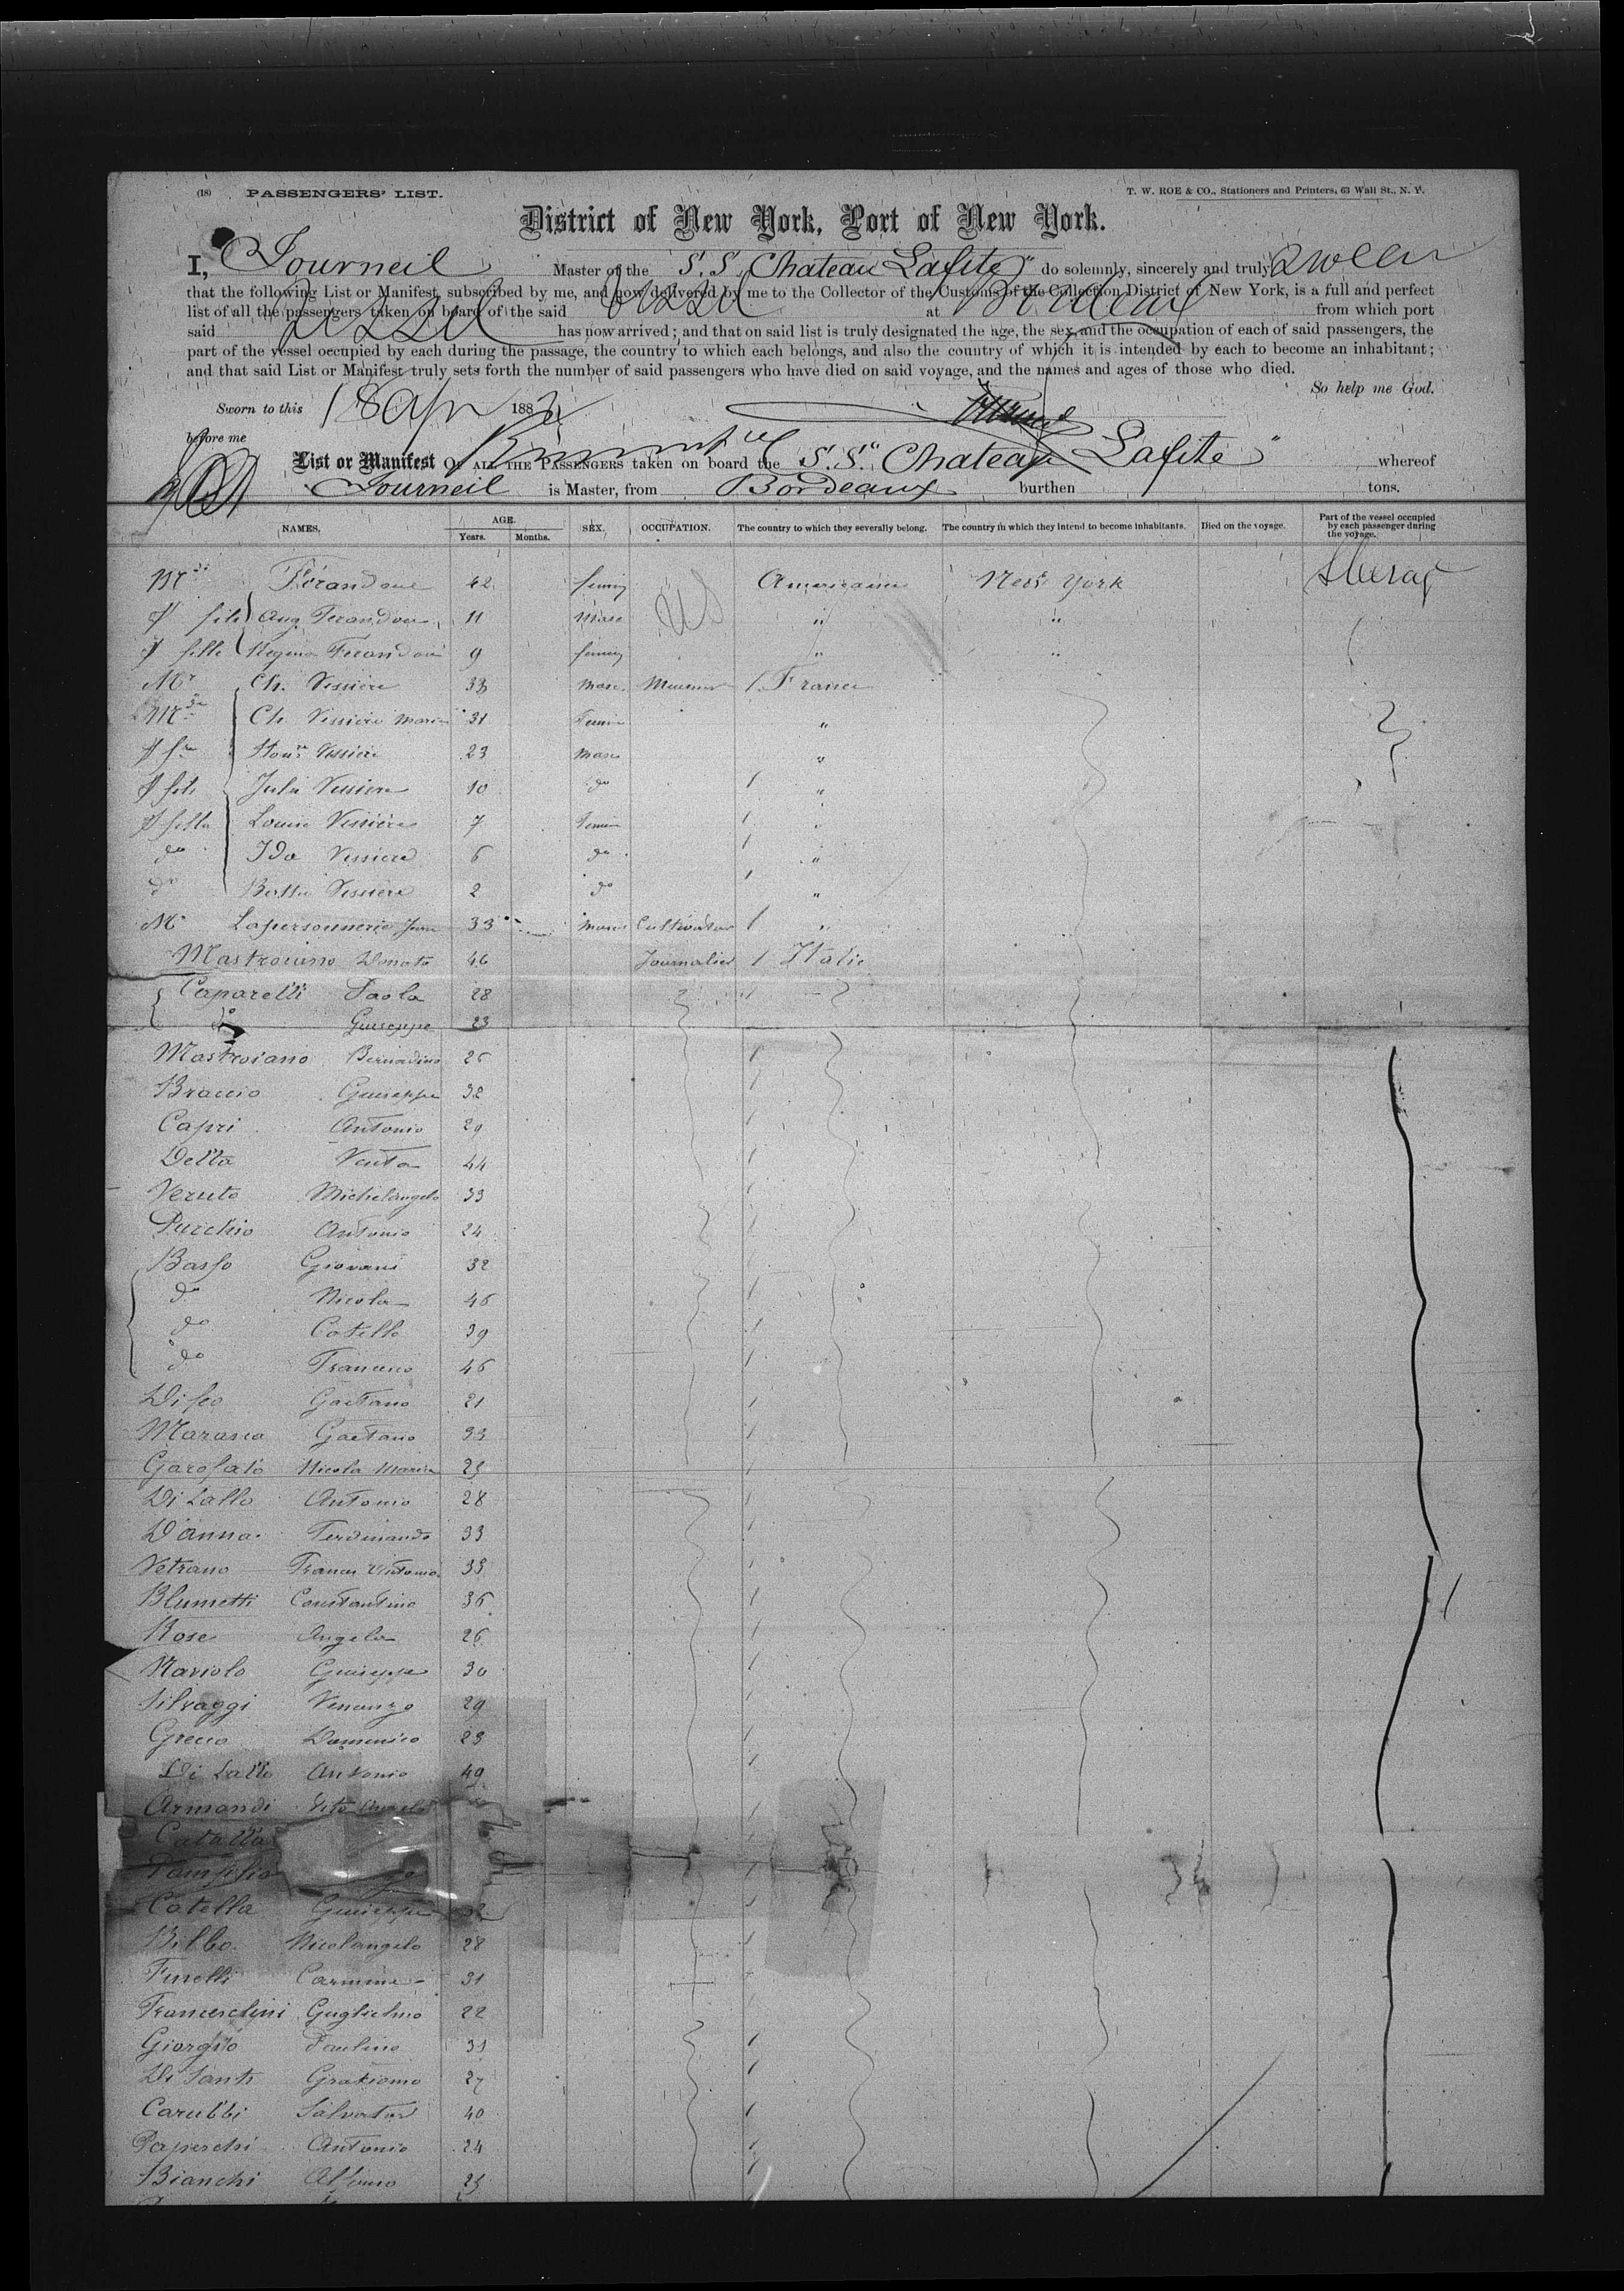 (18) PASSENGERS' LIST.
T. W. ROE & CO., Stationers and Printers, 63 Wall St., N. Y.
District of New York, Port of New York.
I, Journeil Master of the S.S. "Chateau Lafite" do solemnly, sincerely and truly swear
that the following List or Manifest, subscribed by me, and now delivered by me to the Collector of the Customs of the Collection District of New York, is a full and perfect
list of all the passengers taken on board of the said vessel at Bordeaux from which port
said vessel has now arrived; and that on said list is truly designated the age, the sex, and the occupation of each of said passengers, the
part of the vessel occupied by each during the passage, the country to which each belongs, and also the country of which it is intended by each to become an inhabitant;
and that said List or Manifest truly sets forth the number of said passengers who have died on said voyage, and the names and ages of those who died.
So help me God.
Sworn to this 18 Apr 188
before me
List or Manifest OF ALL THE PASSENGERS taken on board the S.S. "Chateau Lafite" whereof
Journeil is Master, from Bordeaux burthen tons.
NAMES. AGE. Years. Months. SEX. OCCUPATION. The country to which they severally belong. The country in which they intend to become inhabitants. Died on the voyage. Part of the vessel occupied by each passenger during the voyage.
Mde Ferandone 42 femin US Americaine New York Steerage
fils Aug. Ferandone 11 masc " "
fille Regina Ferandone 9 femin " "
Mr Ch. Vissiere 33 masc. 1 France
Mde Ch. Vissiere Maria 31 Femin "
Vissiere 23 masc "
fils Julie Vissiere 10 do 1 "
fille Louise Vissiere 7 Femin 1 "
do Ida Vissiere 6 do 1 "
do Vissiere 2 do 1 "
Mr Lapersonnerie Jean 33 masc Cultivateur 1 "
Mastroianno Donato 46 Journalier 1 Italie
Caparelli Paola 28 1
do Giuseppe 23
Mastroiano Bernadino 26 1
Braccio Giuseppe 32 1
Capri Antonio 29 1
Delta Venta 44 1
Veruto Michelangelo 33 1
Purchio Antonio 24 1
Basso Giovani 32
do Nicola 46 1
do Catello 39 1
do 46 1
Difeo Gaetano 21 1
Marasca Gaetano 33 1
Garofalo Nicola Maria 25 1
Di Lallo Antonio 28 1
D'anna Ferdinando 33 1
Vetrano Franc Antonio 33 1
Blumetti Constantino 36 1
Rose Angela 26 1
Mariolo Giuseppe 30 1
Silvaggi Venanzo 29 1
Greco Domenico 23 1
Di Lallo Antonio 49 1
Armandi Vito 1
Catalla
Catella Giuseppe 1
Bilbo Nicolangelo 28 1
Finelli Carmine 31
Franceschini Guglielmo 22
Giorgio Paulino 31 1
Di Santi Graziano 27 1
Carubbi Salvator 40 1
Paperchi Antonio 24 1
Bianchi Alfonso 25 1